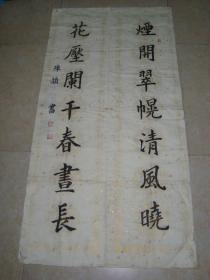 煙開翠幌清風曉
花壓闌干春晝長